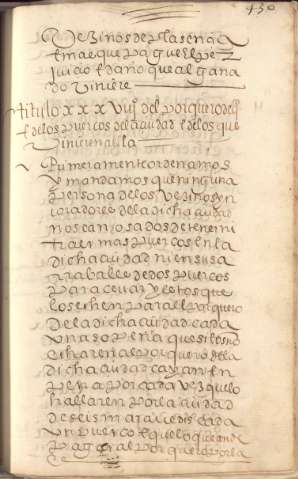 430
Vezinos de plasençia
E mas que pague El per
Juicio E daño que al gana
do viniere
titulo xxxviij del porquero dels
E de los puercos de la çiudad E de los que
vinieren a ella
Primeramente ordenamos
y mandamos que ninguna
persona de los vezinos y n
moradores de la dicha çiudad
no sean osados de tener ni
traer mas puercos En la
dicha çiudad ni en sus a
rrabales de dos puercos
para cevar y estos que
los echen para El porquero
de la dicha çiudad cada
uno so pena que si los no
echaren al porquero de la
dicha çiudad cayan En
pena por cada vez que lo
hallaren por la çiudad
de seis maravedis cada
un puerco E que lo que ande
pagar al porquero por la